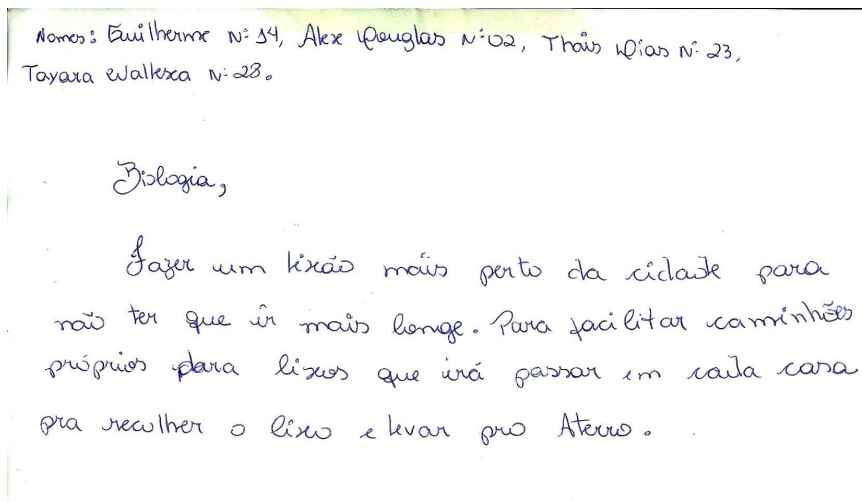 Nomes: Guilherme N: 14, Alex Douglas N: 02, Thais Dias N: 23,
Tayara Walleska N: 28.
Biologia,
Fazer um lixão mais perto da cidade para
não ter que ir mais longe. Para facilitar caminhões
próprios para lixos que irá passar em cada casa
pra recolher o lixo e levar pro Aterro.